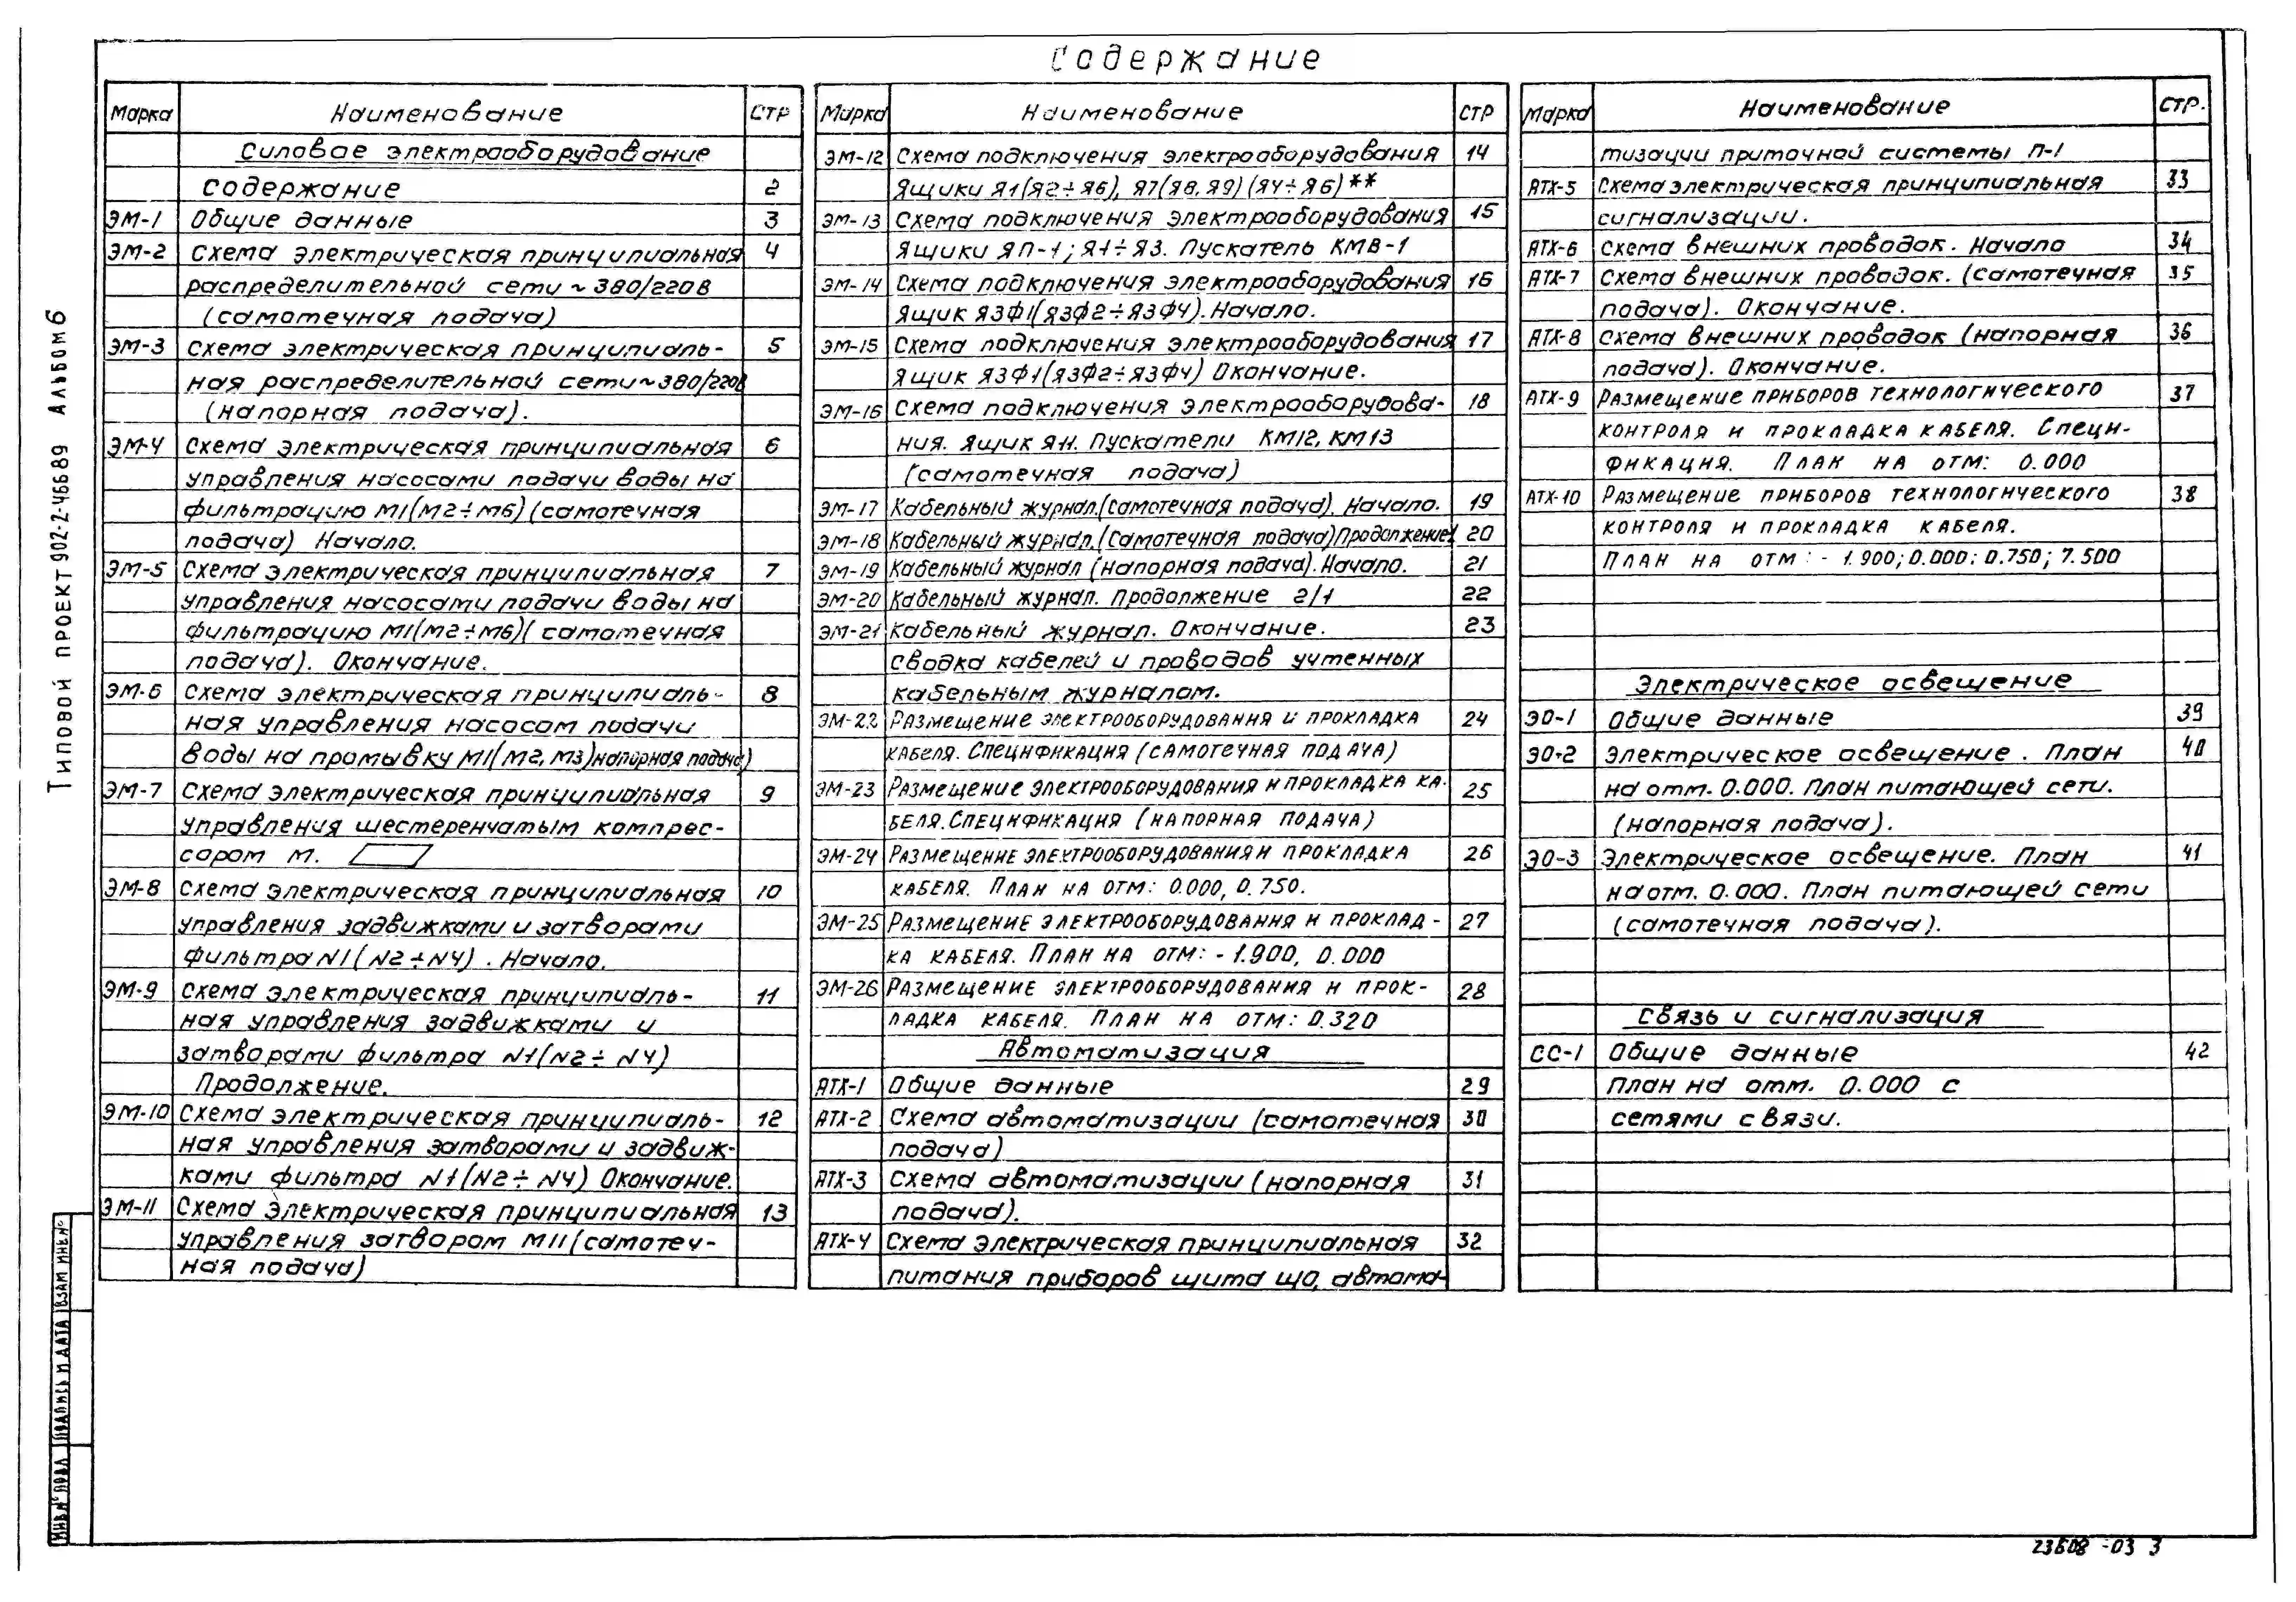 Содержание
Марка Наименование Стр
Силовое электрооборудование
Содержание 2
ЭМ-1 Общие данные 3
ЭМ-2 Схема электрическая принципиальная 4
распределительной сети ~ 380/220В
(самотечная подача)
ЭМ-3 Схема электрическая принципиаль- 5
ная распределительной сети ~ 380/220В
(напорная подача).
ЭМ-4 Схема электрическая принципиальная 6
управления насосами подачи воды на
фильтрацию М1(М2÷М6) (самотечная
подача) Начало.
ЭМ-5 Схема электрическая принципиальная 7
управления насосами подачи воды на
фильтрацию М1(М2÷М6)( самотечная
подача). Окончание.
ЭМ-6 Схема электрическая принципиаль- 8
ная управления насосом подачи
воды на промывку М1(М2, М3)напорная подача)
ЭМ-7 Схема электрическая принципиальная 9
управления шестеренчатым компрес-
сором М.
ЭМ-8 Схема электрическая принципиальная 10
управления задвижками и затворами
фильтра N1( N2÷N4) . Начало.
ЭМ-9 Схема электрическая принципиаль- 11
ная управления задвижками и
затворами фильтра N1(N2÷ N4)
Продолжение.
ЭМ-10 Схема электрическая принципиаль- 12
ная управления затворами и задвиж-
ками фильтра N1(N2÷ N4) Окончание.
ЭМ-11 Схема электрическая принципиальная 13
управления затвором М11(самотеч-
ная подача)
Марка Наименование Стр
ЭМ-12 Схема подключения электрооборудования 14
Ящики Я1(Я2÷Я6), Я7(Я8, Я9) (Я4÷Я6)**
ЭМ-13 Схема подключения электрооборудования 15
Ящики ЯП-1; Я1÷Я3. Пускатель КМВ-1
ЭМ-14 Схема подключения электрооборудования 16
Ящик Я3Ф1(Я3Ф2÷Я3Ф4). Начало.
ЭМ-15 Схема подключения электрооборудования 17
Ящик Я3Ф1(Я3Ф2÷Я3Ф4) Окончание.
ЭМ-16 Схема подключения электрооборудова- 18
ния. Ящик Я11. Пускатели КМ12, КМ13
(самотечная подача)
ЭМ-17 Кабельный журнал.(Самотечная подача). Начало. 19
ЭМ-18 Кабельный журнал. (Самотечная подача)Продолжение1 20
ЭМ-19 Кабельный журнал (напорная подача). Начало. 21
ЭМ-20 Кабельный журнал. Продолжение 2/1 22
ЭМ-21 Кабельный журнал. Окончание. 23
Сводка кабелей и проводов учтенных
кабельным журналом.
ЭМ-22 Размещение электрооборудования и прокладка 24
кабеля. Спецификация (самотечная подача)
ЭМ-23 Размещение электрооборудования и прокладка ка- 25
беля. Спецификация (напорная подача)
ЭМ-24 Размещение электрооборудования и прокладка 26
кабеля. План на отм: 0.000, 0.750.
ЭМ-25 Размещение электрооборудования и проклад- 27
ка кабеля. План на отм: - 1.900, 0.000
ЭМ-26 Размещение электрооборудования и прок- 28
ладка кабеля. План на отм: 0.320
Автоматизация
АТХ-1 Общие данные 29
АТХ-2 Схема автоматизации (самотечная 30
подача)
АТХ-3 Схема автоматизации (напорная 31
подача).
АТХ-4 Схема электрическая принципиальная 32
питания приборов щита ЩО, автома-
Марка Наименование Стр.
тизации приточной системы П-1
АТХ-5 Схема электрическая принципиальная 33
сигнализации.
АТХ-6 Схема внешних проводок. Начало 34
АТХ-7 Схема внешних проводок. (самотечная 35
подача). Окончание.
АТХ-8 Схема внешних проводок (напорная 36
подача). Окончание.
АТХ-9 Размещение приборов технологического 37
контроля и прокладка кабеля. Специ-
фикация. План на отм: 0.000
АТХ-10 Размещение приборов технологического 38
контроля и прокладка кабеля.
План на отм : - 1.900; 0.000; 0.750; 7.500
Электрическое освещение
ЭО-1 Общие данные 39
ЭО-2 Электрическое освещение . План 40
на отм. 0.000. План питающей сети.
(напорная подача).
ЭО-3 Электрическое освещение. План 41
на отм. 0.000. План питающей сети
(самотечная подача).
Связь и сигнализация
СС-1 Общие данные 42
План на отм. 0.000 с
сетями связи.
Типовой проект 902-2-466.89 Альбом 6
Инв.N подл. Подпись и дата Взам инв.N
23608-03 3